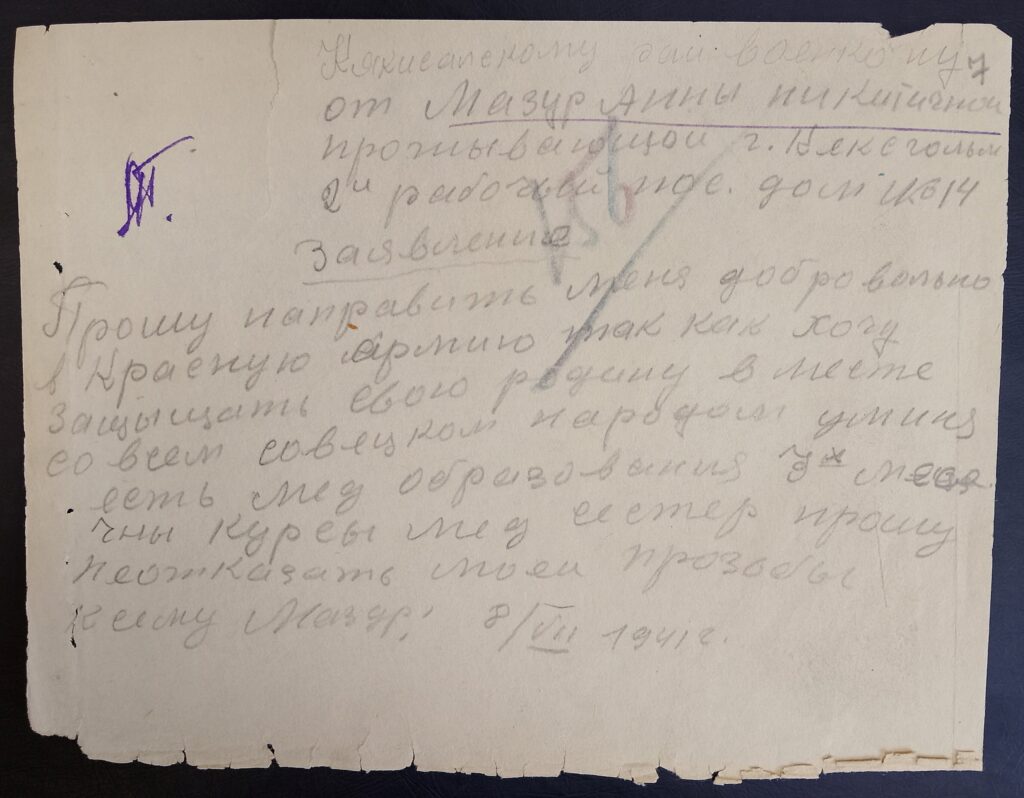 Кякисалскому рай военкому 7
от Мазур Анны никитичной
прожывающой г. Кексгольм
2й рабочый пос. дом №14
Заявление
Прошу направить меня добровольно
в Красную армию так как хочу
защыщать свою родину в месте
со всем совецком народом уминя
есть мед образования 3х меся
чны курсы мед сестер прошу
неотказать моей прозобы
к сему Мазур. 8/VII 1941 г.